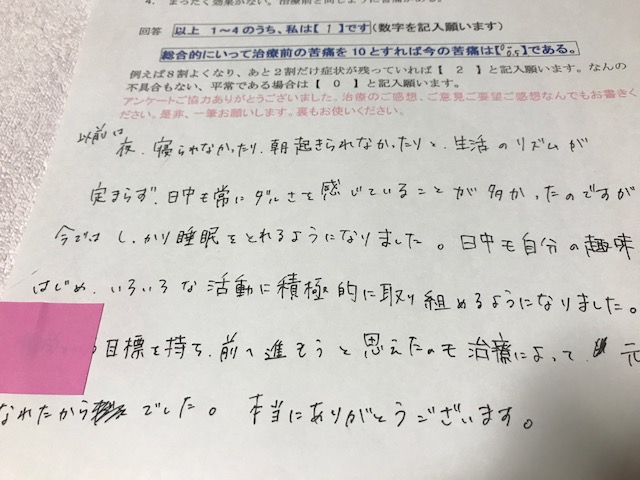 4. まったく効果がない。治療前と同じように苦痛がある。
回答 以上 1～4のうち、私は【 1 】です(数字を記入願います)
総合的にいって治療前の苦痛を10とすれば今の苦痛は【0~0.5】である。
例えば8割よくなり、あと2割だけ症状が残っていれば【 2 】と記入願います。なんの
不具合もない、平常である場合は【 0 】と記入願います。
アンケートご協力ありがとうございました。治療のご感想、ご意見ご要望ご感想なんでもお書きく
ださい。是非、一筆お願いします。裏もお使いください。
以前は
夜、寝られなかったり、朝起きられなかったりと、生活のリズムが
定まらず、日中も常にダルさを感じていることが多かったのですが
今では しっかり睡眠をとれるようになりました。日中も自分の趣味
はじめ、いろいろな活動に積極的に取り組めるようになりました。
目標を持ち、前へ進もうと思えたのも治療によって、元
なれたからでした。本当にありがとうございます。